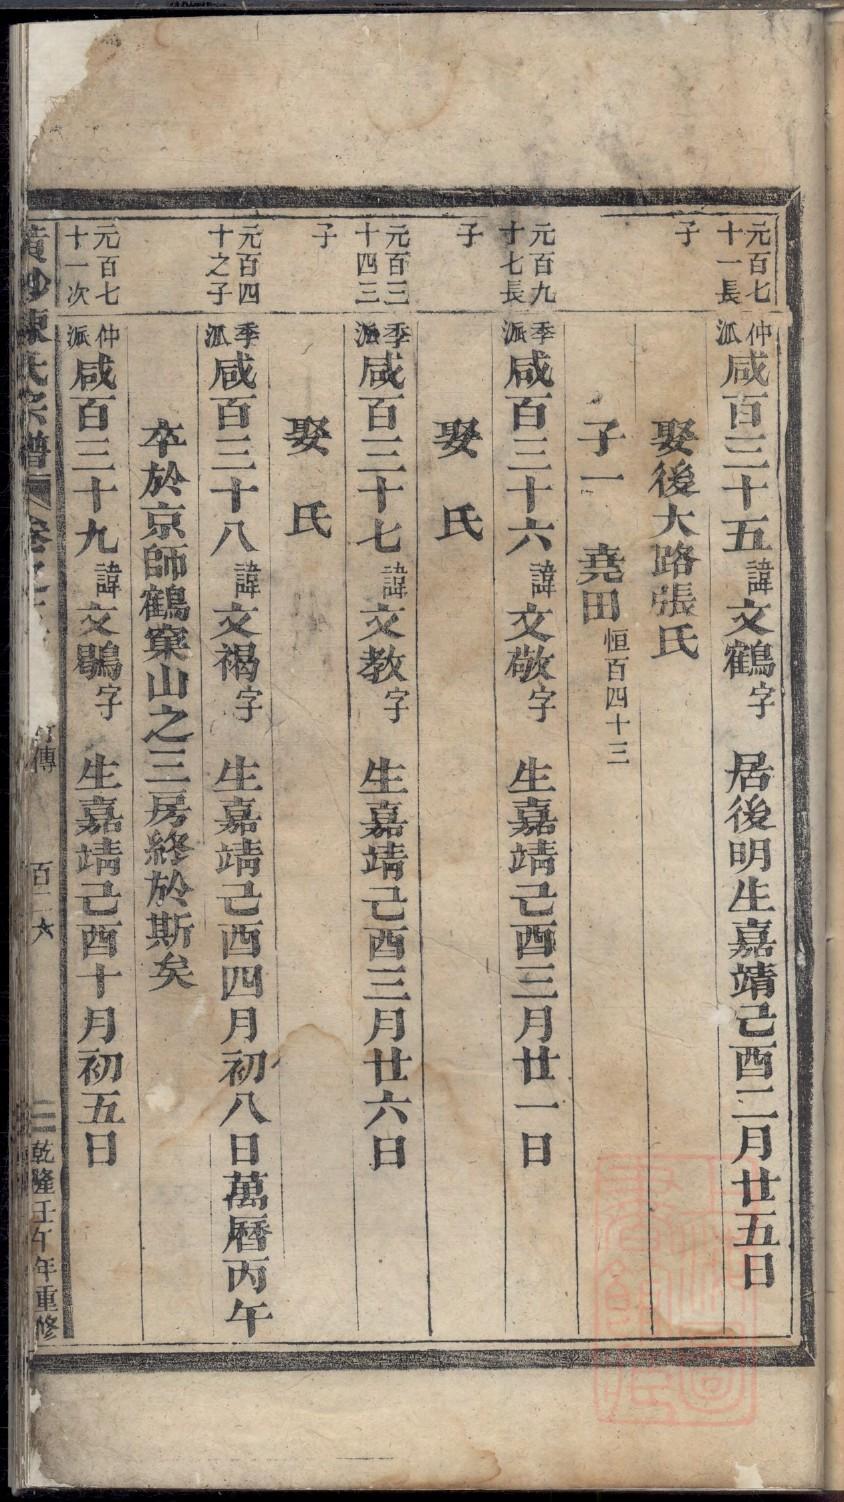 元百七十一長子
仲派咸百三十五諱文鶴字　居後明生嘉靖己酉二月廿五日
娶後大路張氏
子一　堯田恒百四十三
元百九十七長子
季派咸百三十六諱文敬字　生嘉靖己酉三月廿一日
娶　氏
元百三十四三子
季派咸百三十七諱文教字　生嘉靖己酉三月廿六日
娶　氏
元百四十之子
季派咸百三十八諱文褐字　生嘉靖己酉四月初八日萬曆丙午
卒於京師鶴窠山之三房終於斯矣
元百七十一次
仲派咸百三十九諱文鶡字　生嘉靖己酉十月初五日
黃沙陳氏宗譜　卷之
傳　百二六
乾隆壬午年重修